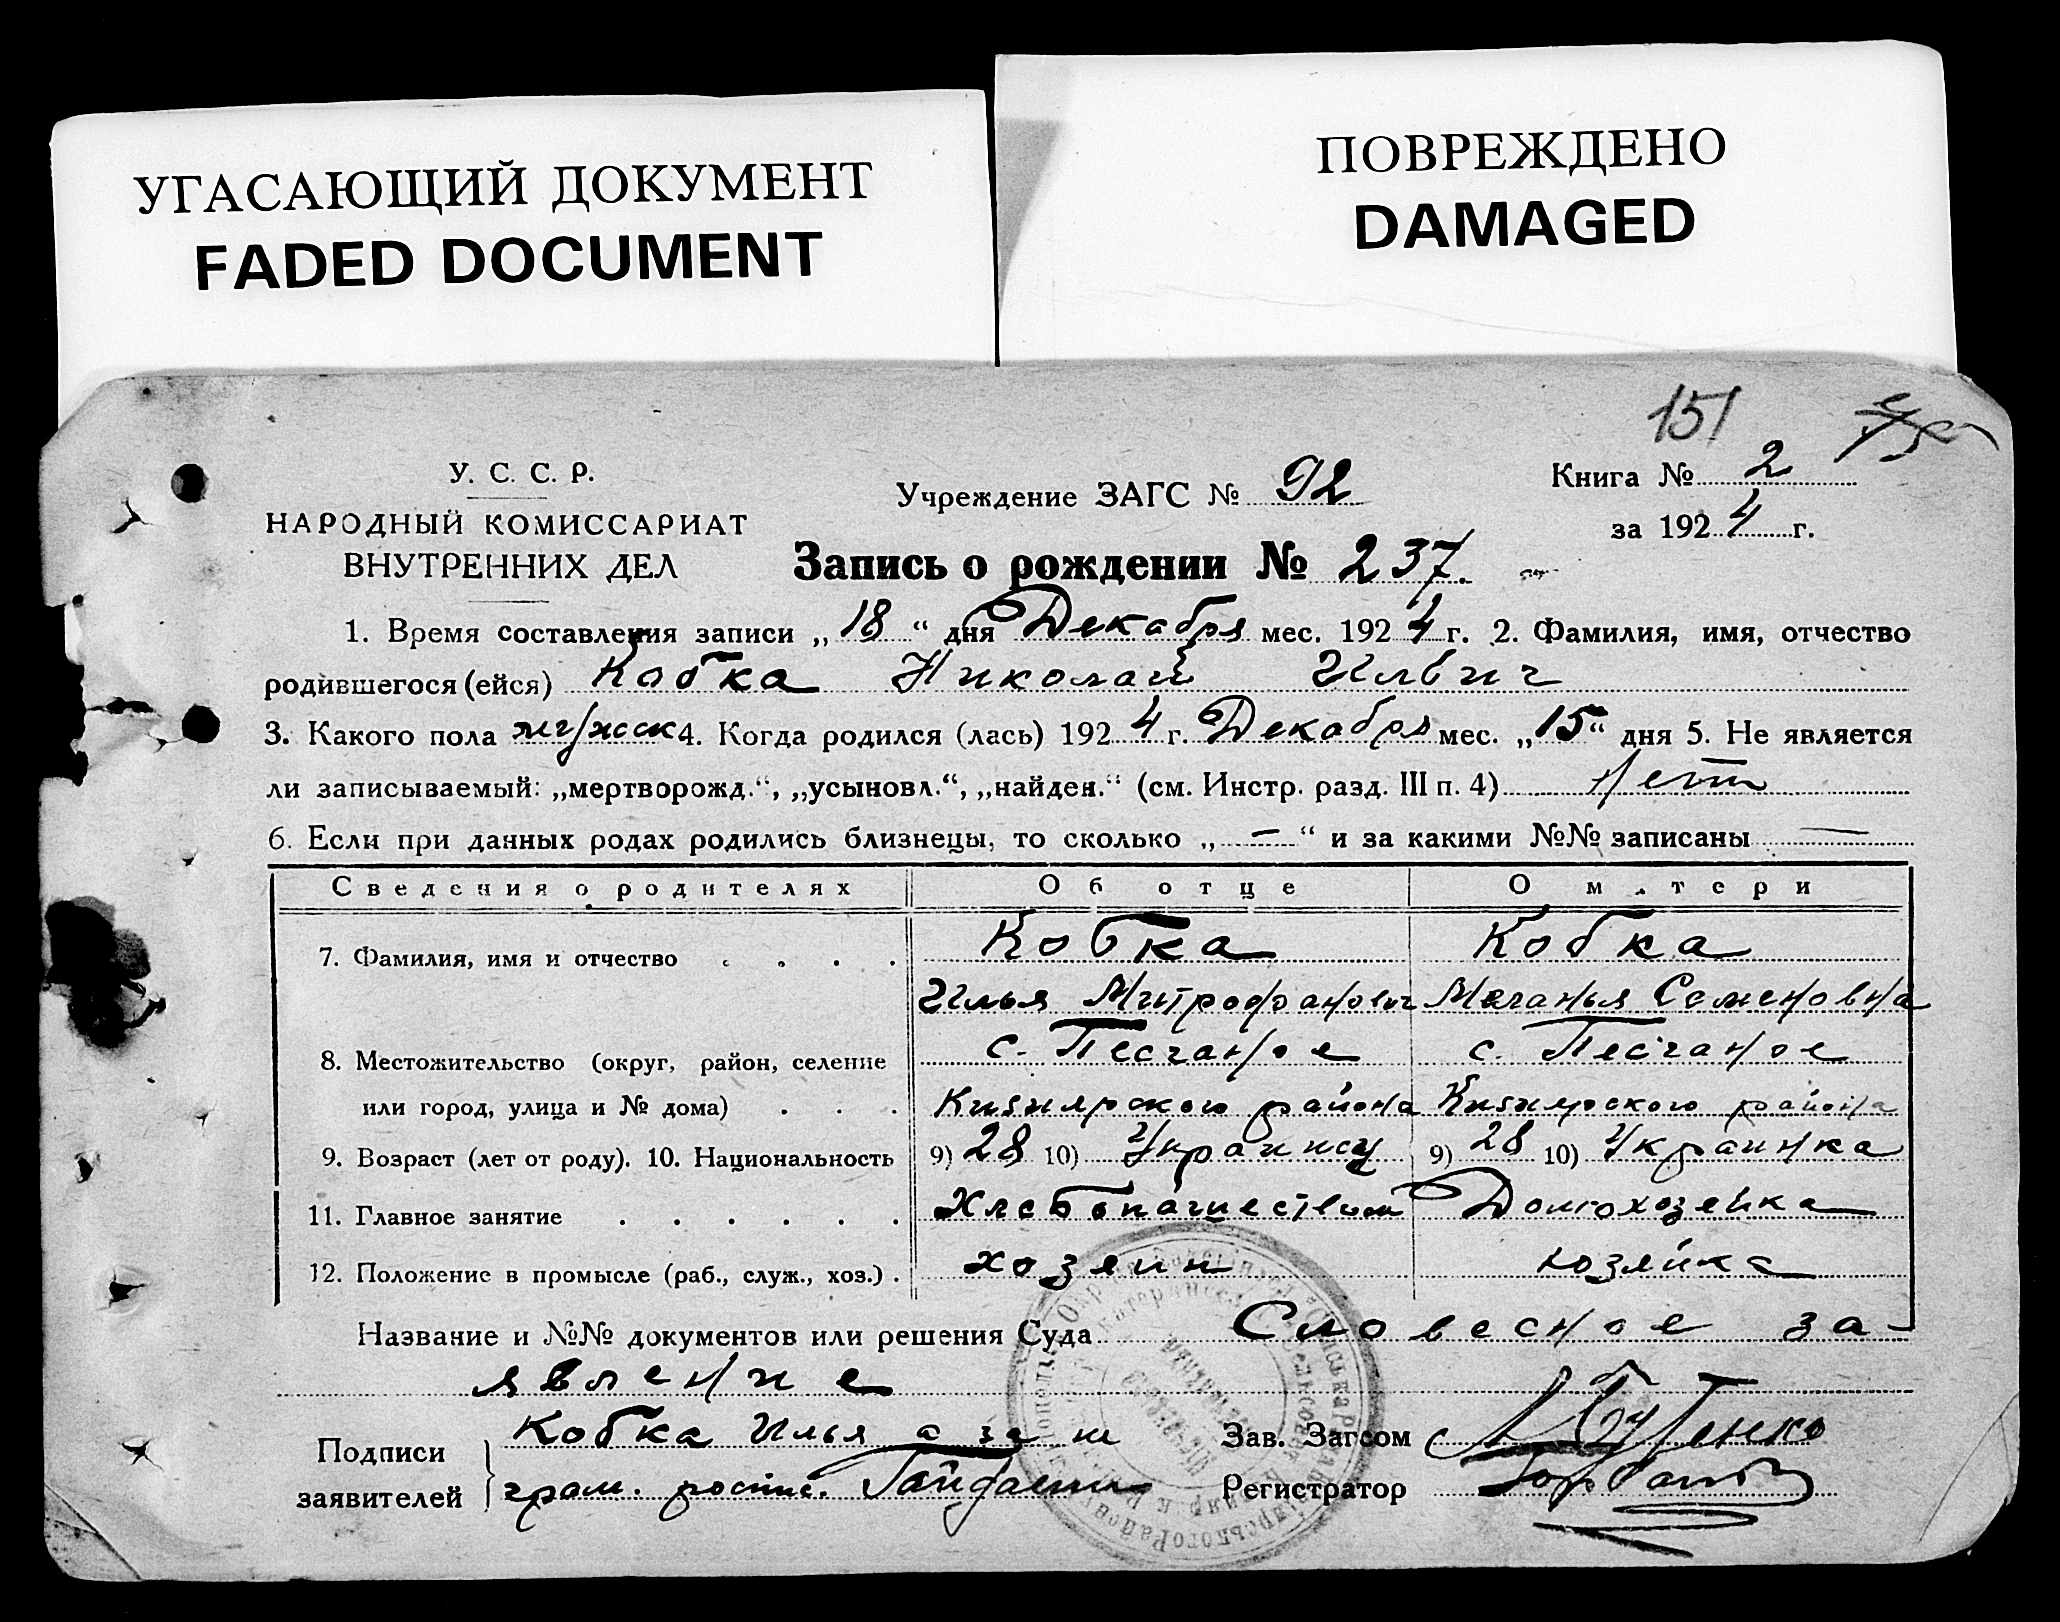 УГАСАЮЩИЙ ДОКУМЕНТ
FADED DOCUMENT
ПОВРЕЖДЕНО
DAMAGED
151
У. С. С. Р.
НАРОДНЫЙ КОМИССАРИАТ
ВНУТРЕННИХ ДЕЛ
Учреждение ЗАГС № 92
Книга № 2
за 1924 г.
Запись о рождении № 237.
1. Время составления записи „18“ дня Декабря мес. 1924 г. 2. Фамилия, имя, отчество
родившегося (ейся) Кобка Николай Ильич
3. Какого пола мужск 4. Когда родился (лась) 1924 г. Декабря мес. „15“ дня 5. Не является
ли записываемый: „мертворожд.“, „усыновл.“, „найден.“ (см. Инстр. разд. III п. 4) Нет
6. Если при данных родах родились близнецы, то сколько „—“ и за какими №№ записаны —
Сведения о родителях Об отце О матери
7. Фамилия, имя и отчество . . . . Кобка Кобка
Илья Митрофанович Меланья Семеновна
8. Местожительство (округ, район, селение с. Песчаное с. Песчаное
или город, улица и № дома) . . . Кишнярского района Кишнярского района
9. Возраст (лет от роду). 10. Национальность 9) 28 10) Украинец 9) 28 10) Украинка
11. Главное занятие . . . . . . Хлебопашеством Домохозейка
12. Положение в промысле (раб., служ., хоз.) . хозяин хозяйка
Название и №№ документов или решения Суда Словесное за-
явление
Подписи заявителей
Кобка Илья а за не
грам. роспис. Гайдаш
Зав. Загсом Бутенко
Регистратор Горбань